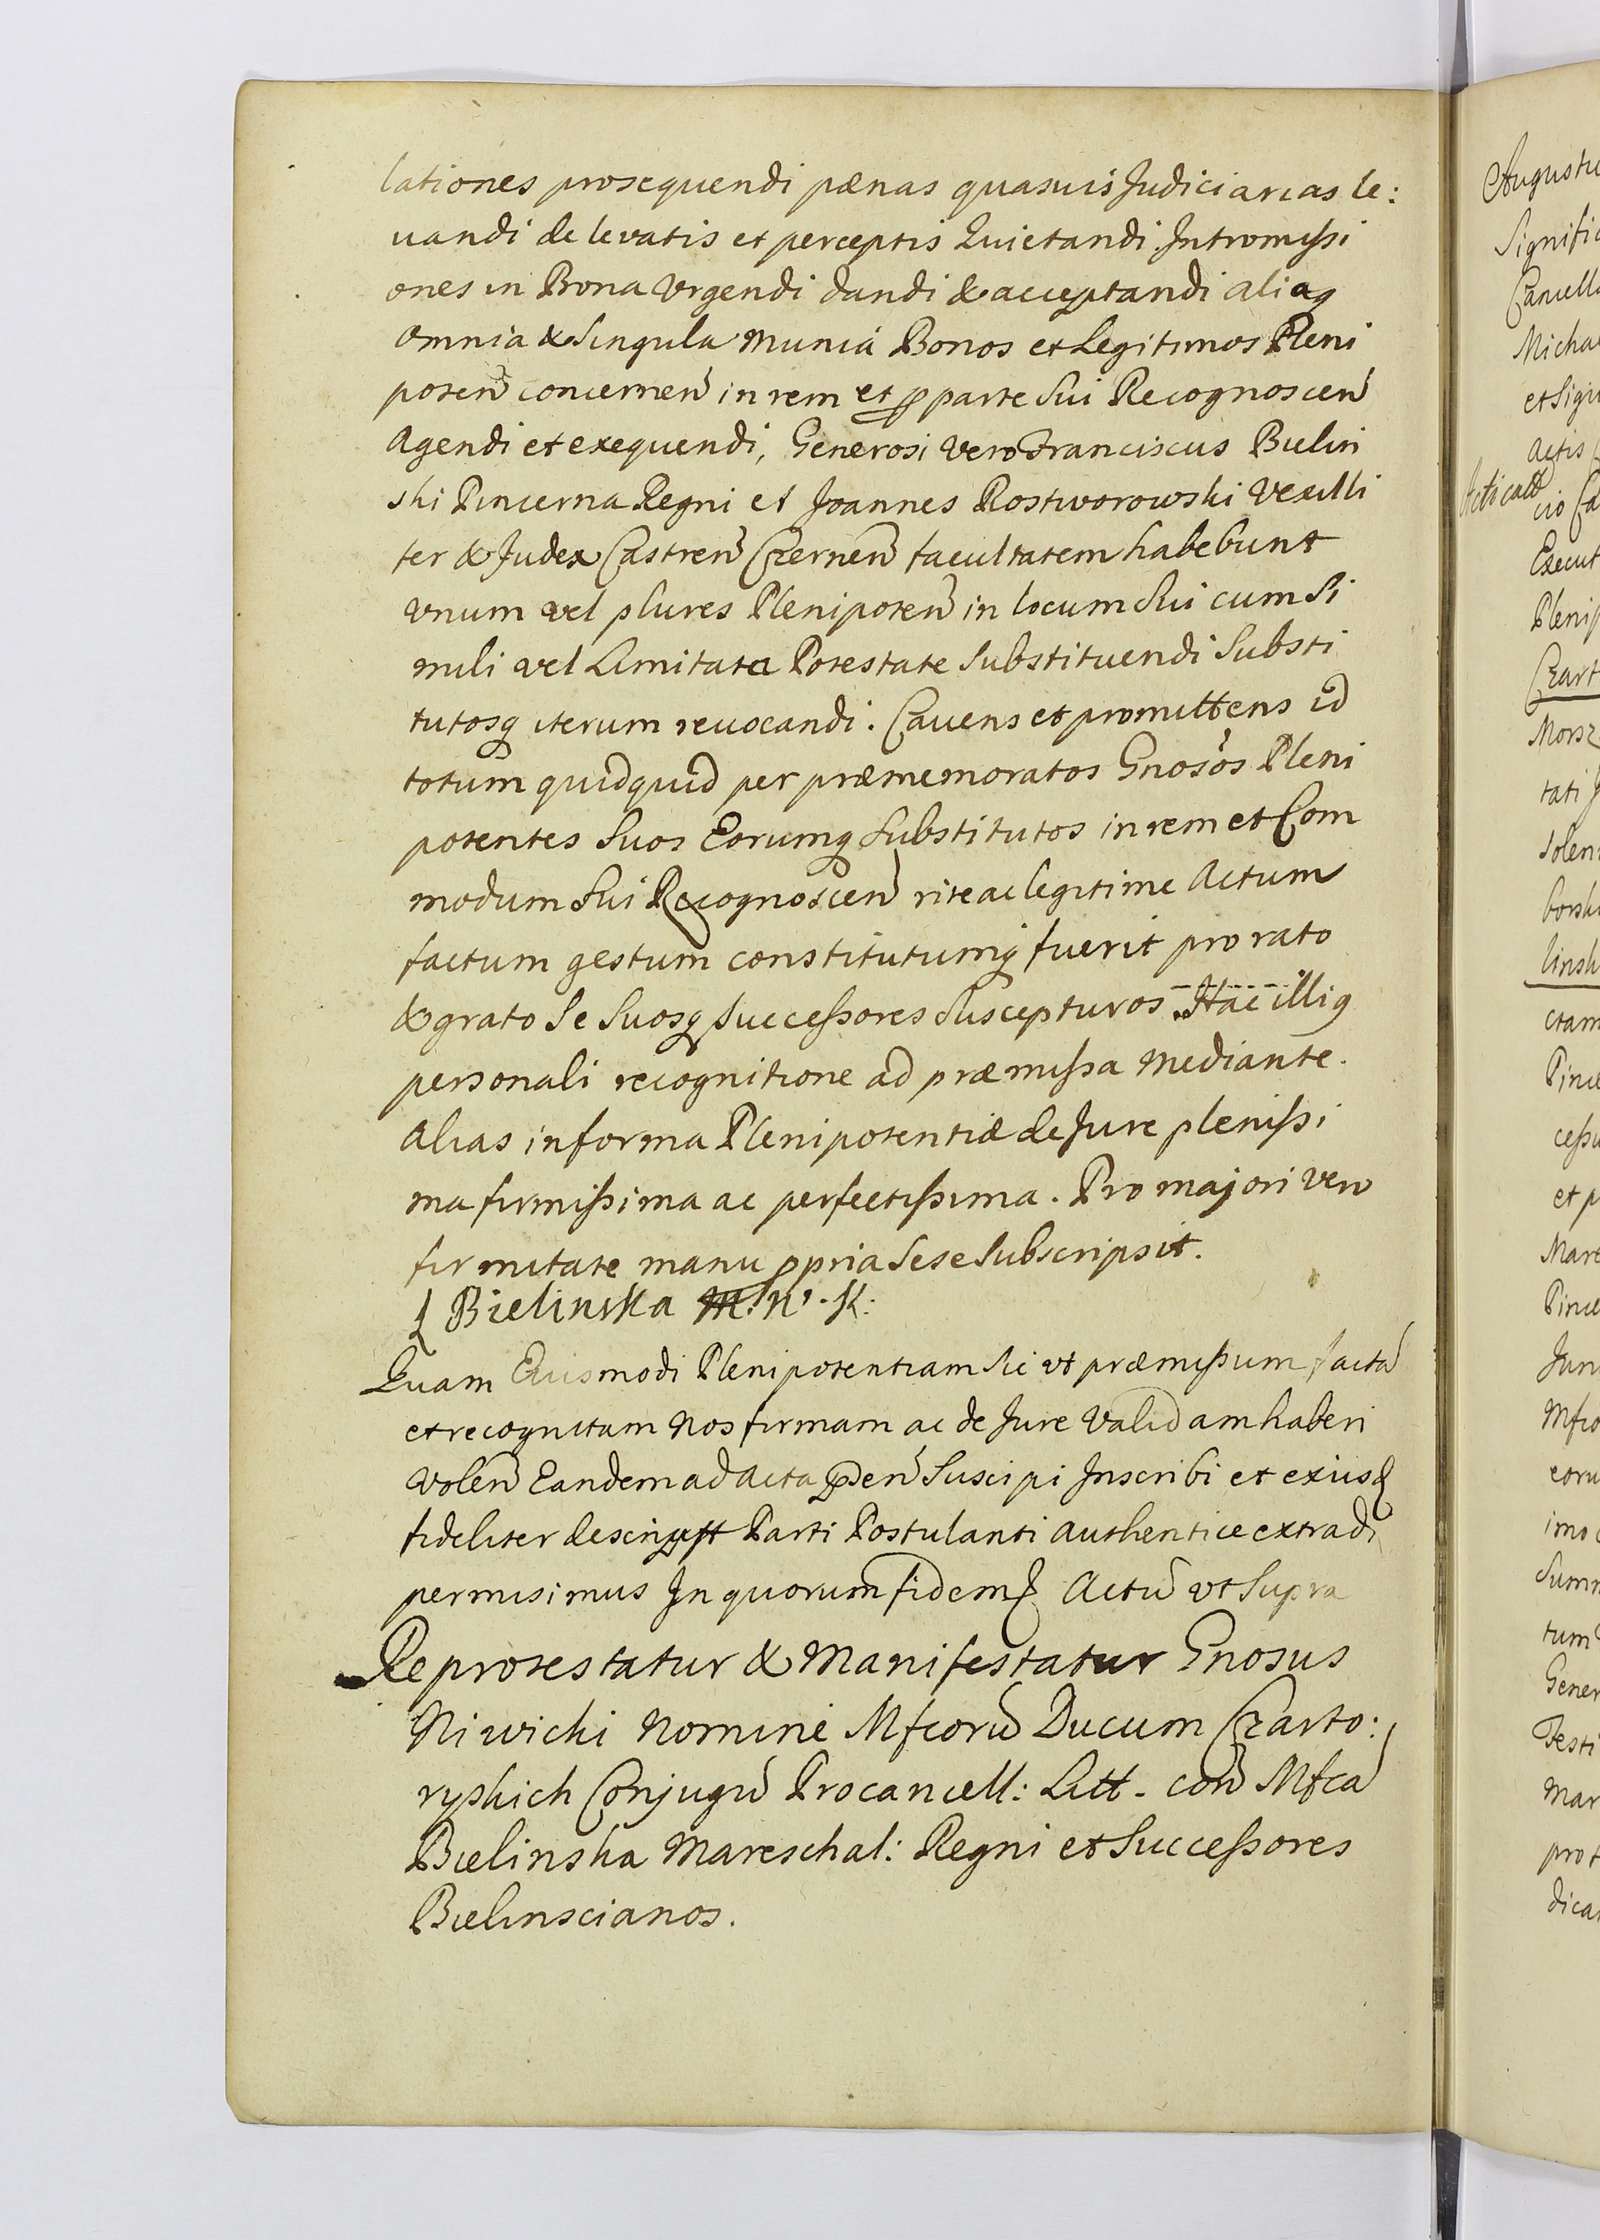 lationes prosequendi pænas quasuis Judiciarias le:
uandi de levatis et perceptis Quietandi Intromissi
ones in Bona Urgendi dandi & acceptandi aliaq
omnia & Singula munia Bonos et Legitimos Pleni
poten concernen in rem et p parte Sui Recognoscen
Agendi et exequendi, Generosi vero Franciscus Bielin
ski Pincerna Regni et Joannes Rostworowski Vexilli
fer & Judex Castren Czernen facultatem habebunt
vnum vel plures Plenipoten in locum Sui cum Si
mili vel Limitata Potestate Substituendi Substi
tutosq iterum reuocandi. Cauens et promittens id
totum quidquid per præmemoratos Gnosos Pleni
potentes Suos Eorumq Substitutos in rem et Com
modum Sui Recognoscen rite ac legitime Actum
factum gestum constitutumq fuerit pro rato
& grato Se Suosq Successores Suscepturos. Hac illiq
personali recognitione ad præmissa mediante.
Alias in forma Plenipotentiæ de Jure plenissi
ma firmissima ac perfectissima. Pro majori vero
firmitate manu ppria Sese Subscripsit.
Bielinska M. N. K:
Quam Eiusmodi Plenipotentiam Sic vt præmissum facta
et recognitam Nos firmam ac de Jure Validam haberi
Volen Eandem ad Acta Pden Suscipi Inscribi et exiusd
fideliter descript Parti Postulanti Authentice extradi
permisimus In quorum fidem Actu vt Supra
Reprotestatur & Manifestatur Gnosus
Niwicki Nomine Mfcoru Ducum Czarto:
ryskich Conjugu Procancell: Litt. con Mfca
Bielinska Mareschal: Regni et Successores
Bielinscianos.
Augustu
Signific
Cancella
Micha
et Sign
Actis
Acticatt
cio Ca
Execut
Plenip
Czart
Morsz
tati J
Solen
borski
linsk
ctam
Pince
cessu
et p
Mare
Pince
Jun
Mfco
eoru
imo
Summ
tum
Gener
Testi
mar
prot
dica